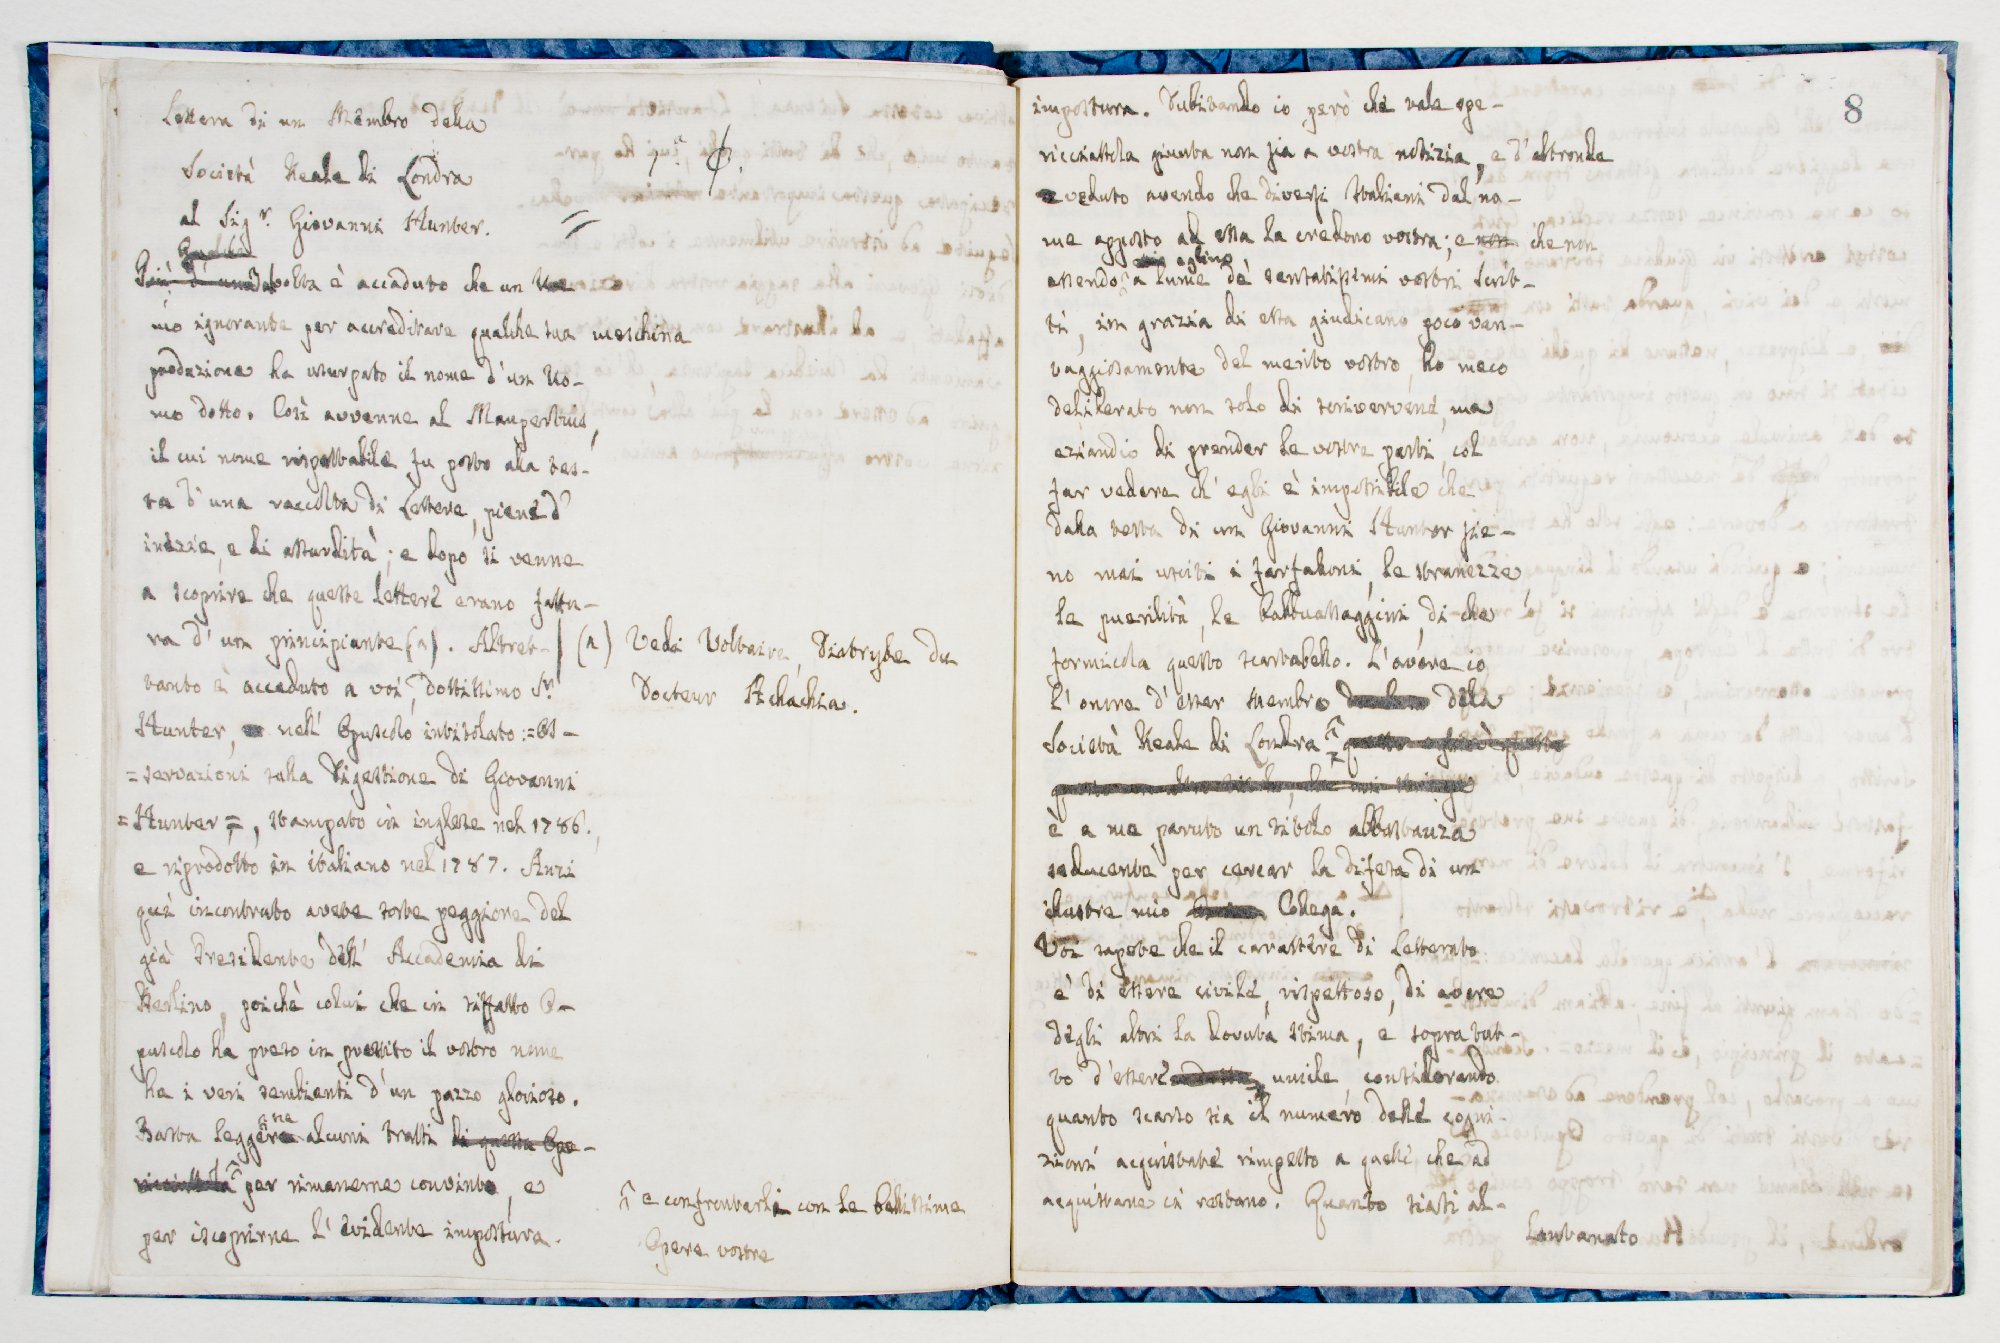 Lettera di un Membro della
Società Reale di Londra
al Sig.r Giovanni Hunter.
Qualche
Più d'una volta è accaduto che un Uo
mo ignorante per accreditare qualche sua meschina
produzione ha usurpato il nome d'un Uo-
mo dotto. Così avvenne al Maupertuis,
il cui nome rispettabile fu posto alla tes-
ta d'una raccolta di Lettere, piene d'
inezie, e di assurdità; e dopo si venne
a scoprire che queste lettere erano fattu-
ra d'un principiante (a). Altret-
tanto è accaduto a voi, dottissimo Sr.
Hunter, nell' Opuscolo intitolato := Os-
= servazioni sulla Digestione di Giovanni
= Hunter =, stampato in inglese nel 1786.,
e riprodotto in italiano nel 1787. Anzi
quì incontrato avete sorte peggiore del
già Presidente dell' Accademia di
Berlino, poichè colui che in siffatto O-
puscolo ha preso in prestito il vostro nome
ha i veri sembianti d'un pazzo glorioso.
Basta leggerne alcuni tratti di questa Ope-
ricciattola per rimanerne convinto, e
per iscoprirne l'evidente impostura.
(a) Vedi Voltaire, Diatrybe du
Docteur Akachia.
e confrontarli con le bellissime
Opere vostre
8
impostura. Dubitando io però che tale ope-
ricciattola giunta non sia a vostra notizia, e d'altronde
veduto avendo che diversi Italiani dal no-
me apposto ad essa la credono vostra; e non che non
eglino
essendo a lume de' sensatissimi vostri Scrit-
ti, in grazia di essa giudicano poco van-
taggiosamente del merito vostro, ho meco
deliberato non solo di scrivervene, ma
eziandio di prender le vostre parti, col
far vedere ch' egli è impossibile che
dalla testa di un Giovanni Hunter sie-
no mai usciti i farfalloni, le stranezze
le puerilità, le babbuassaggini, di che
formicola questo scartabello. L'avere io
l'onore d'esser Membro della
Società Reale di Londra
è a me paruto un titolo abbastanza
seducente per cercar la difesa di un
illustre mio Collega.
Voi sapete che il carattere di Letterato
è di essere civile, rispettoso, di avere
degli altri la dovuta stima, e sopra tut-
to d'essere umile, considerando
quanto scarso sia il numero delle cogni-
zioni acquistate rimpetto a quelle che ad
acquistare ci restano. Quanto siasi al-
lontanato